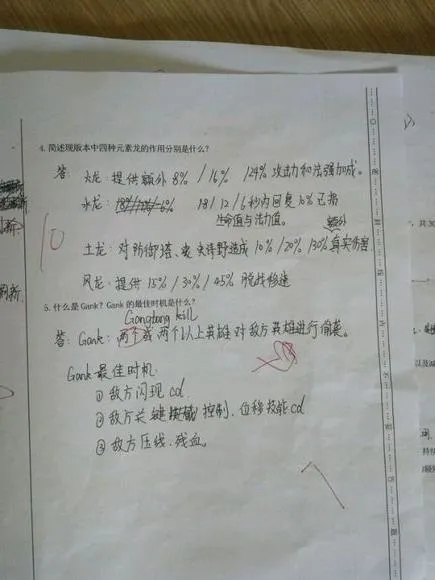 4. 简述现版本中四种元素龙的作用分别是什么？
答： 火龙：提供额外 8% / 16% / 24% 攻击力和法强加成。
水龙： 18 / 12 / 6 秒内回复 10% 已损
生命值与法力值。
额外
10
土龙： 对防御塔、史诗野造成 10% / 20% / 30% 真实伤害
风龙： 提供 15% / 30% / 45% 脱战移速
5. 什么是 Gank？Gank 的最佳时机是什么？
Gangbang kill
答： Gank： 两个或两个以上英雄对敌方英雄进行偷袭。
Gank 最佳时机
① 敌方闪现 cd
② 敌方关键 控制、位移技能 cd
③ 敌方压线、残血。
7